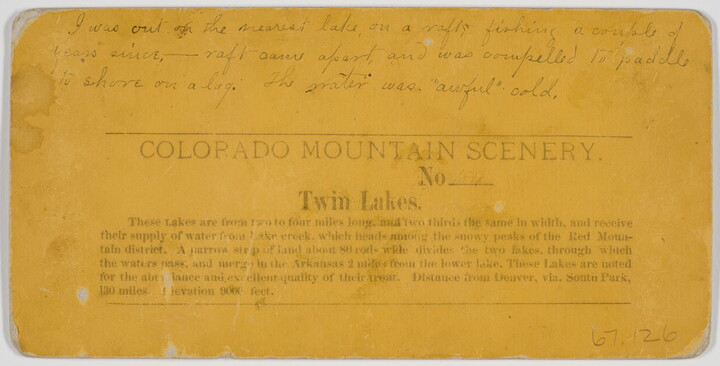 I was out on the nearest lake, on a raft, fishing a couple of
years since, — raft came apart, and was compelled to paddle
to shore on a log. The water was "awful" cold.
COLORADO MOUNTAIN SCENERY.
No
Twin Lakes.
These Lakes are from two to four miles long, and two thirds the same in width, and receive
their supply of water from Lake creek, which heads among the snowy peaks of the Red Moun-
tain district. A narrow strip of land about 80 rods wide divides the two lakes, through which
the waters pass, and merge in the Arkansas 2 miles from the lower lake. These Lakes are noted
for the abundance and excellent quality of their trout. Distance from Denver, via. South Park,
130 miles. Elevation 9000 feet.
67.126